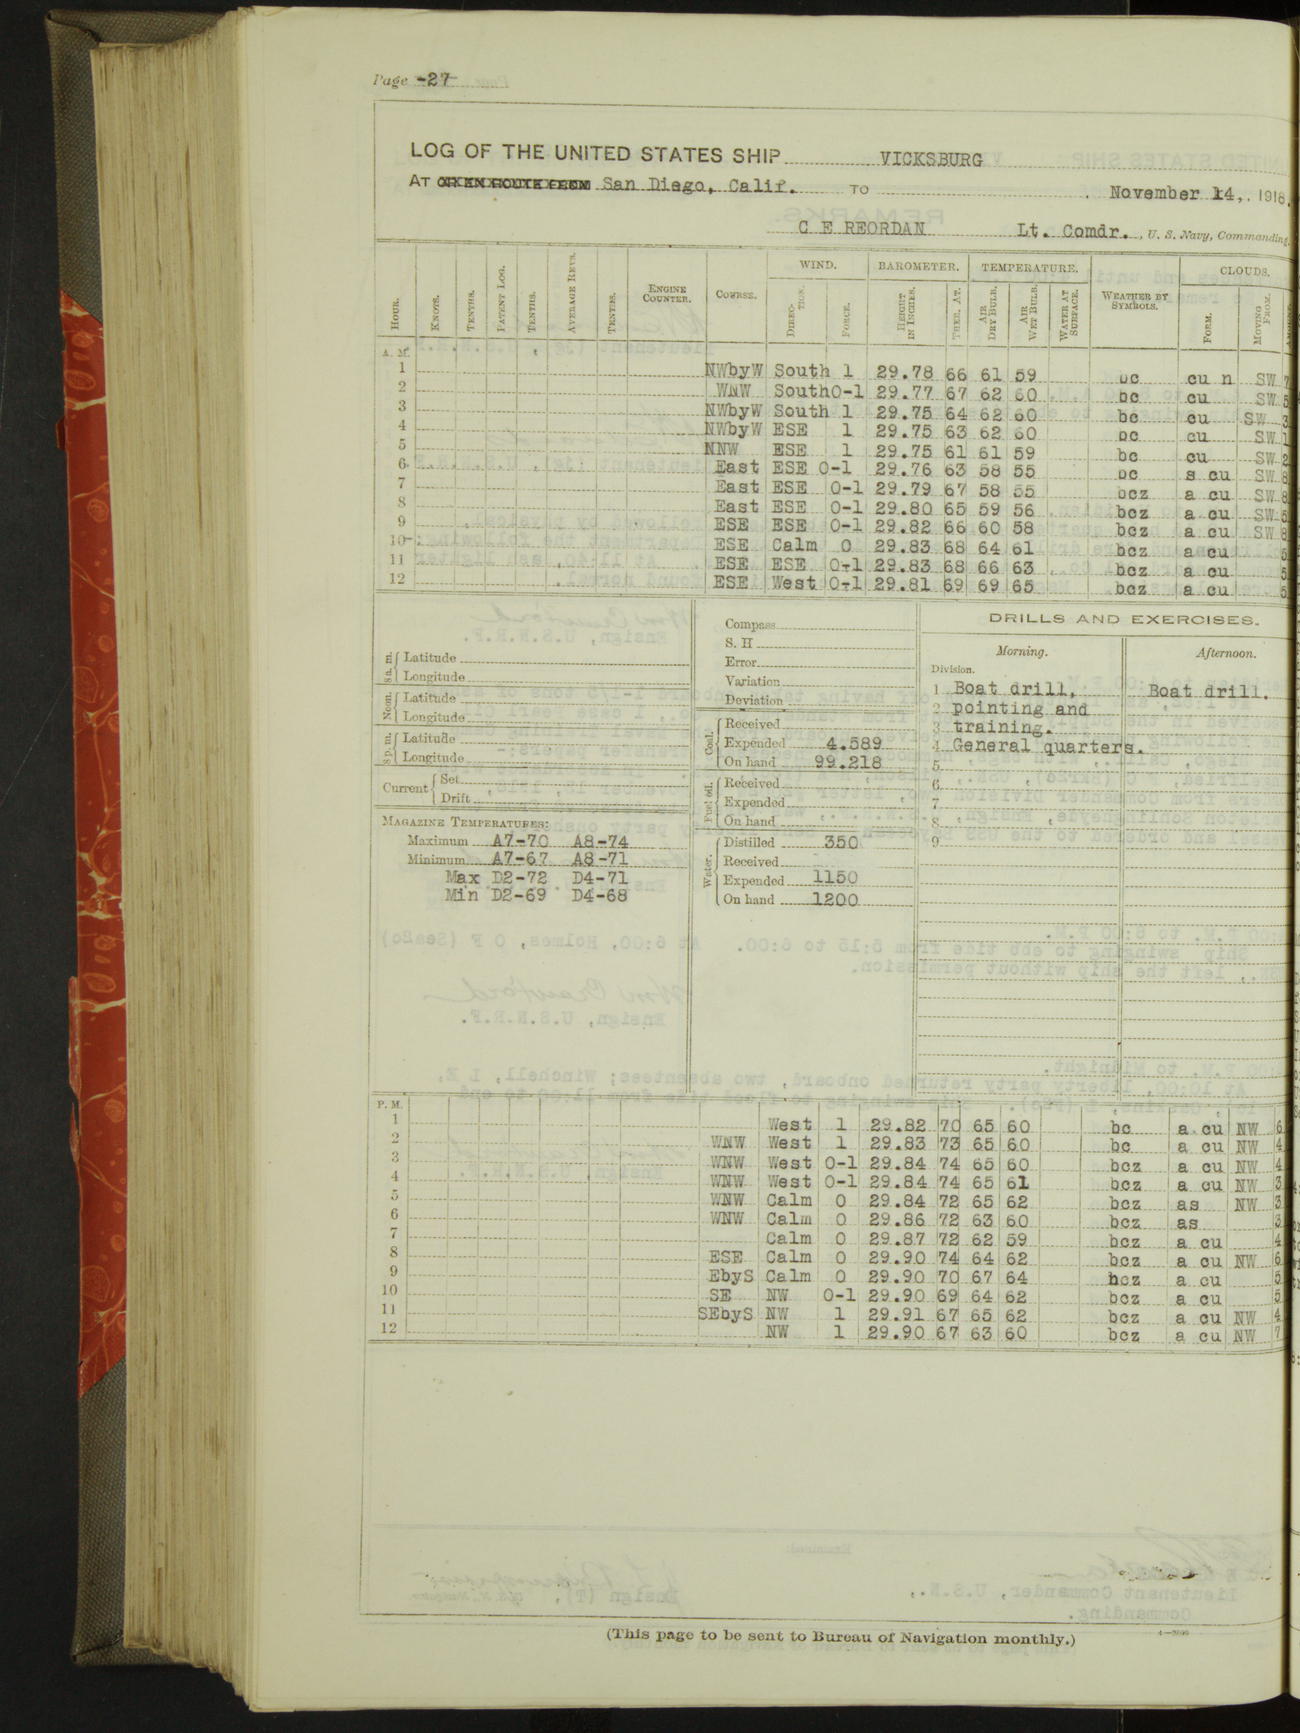 Page -27-
LOG OF THE UNITED STATES SHIP VICKSBURG
AT OR EN ROUTE FROM San Diego, Calif. TO November 14, 1918.
C E REORDAN Lt. Comdr., U. S. Navy, Commanding.
HOUR. KNOTS. TENTHS. PATENT LOG. TENTHS. AVERAGE REVS. TENTHS. ENGINE COUNTER. COURSE. WIND. DIRECTION. FORCE. BAROMETER. HEIGHT IN INCHES. THER. AT. TEMPERATURE. AIR DRY BULB. AIR WET BULB. WATER AT SURFACE. WEATHER BY SYMBOLS. CLOUDS. FORM. MOVING FROM.
A. M.
1 NWbyW South 1 29.78 66 61 59 bc cu n SW 7
2 WNW South 0-1 29.77 67 62 60 bc cu SW 5
3 NWbyW South 1 29.75 64 62 60 bc cu SW 3
4 NWbyW ESE 1 29.75 63 62 60 bc cu SW 1
5 NNW ESE 1 29.75 61 61 59 bc cu SW 2
6 East ESE 0-1 29.76 63 58 55 bc s cu SW 8
7 East ESE 0-1 29.79 67 58 55 bcz a cu SW 8
8 East ESE 0-1 29.80 65 59 56 bcz a cu SW 5
9 ESE ESE 0-1 29.82 66 60 58 bcz a cu SW 8
10 ESE Calm 0 29.83 68 64 61 bcz a cu 5
11 ESE ESE 0-1 29.83 68 66 63 bcz a cu 5
12 ESE West 0-1 29.81 69 69 65 bcz a cu 5
8 a. m. Latitude
Longitude
Noon. Latitude
Longitude
8 p. m. Latitude
Longitude
Current Set
Drift
MAGAZINE TEMPERATURES:
Maximum A7-70 A8-74
Minimum A7-67 A8-71
Max D2-72 D4-71
Min D2-69 D4-68
Compass
S. H
Error
Variation
Deviation
Coal. Received
Expended 4.589
On hand 99.218
Fuel oil. Received
Expended
On hand
Water. Distilled 350
Received
Expended 1150
On hand 1200
DRILLS AND EXERCISES.
Morning. Afternoon.
Division.
1 Boat drill, Boat drill.
2 pointing and
3 training.
4 General quarters.
5
6
7
8
9
P. M.
1 West 1 29.82 70 65 60 bc a cu NW 6
2 WNW West 1 29.83 73 65 60 bc a cu NW 4
3 WNW West 0-1 29.84 74 65 60 bcz a cu NW 4
4 WNW West 0-1 29.84 74 65 61 bcz a cu NW 3
5 WNW Calm 0 29.84 72 65 62 bcz as NW 3
6 WNW Calm 0 29.86 72 63 60 bcz as 3
7 Calm 0 29.87 72 62 59 bcz a cu 4
8 ESE Calm 0 29.90 74 64 62 bcz a cu NW 6
9 EbyS Calm 0 29.90 70 67 64 bcz a cu 5
10 SE NW 0-1 29.90 69 64 62 bcz a cu 5
11 SEbyS NW 1 29.91 67 65 62 bcz a cu NW 4
12 NW 1 29.90 67 63 60 bcz a cu NW 7
(This page to be sent to Bureau of Navigation monthly.)